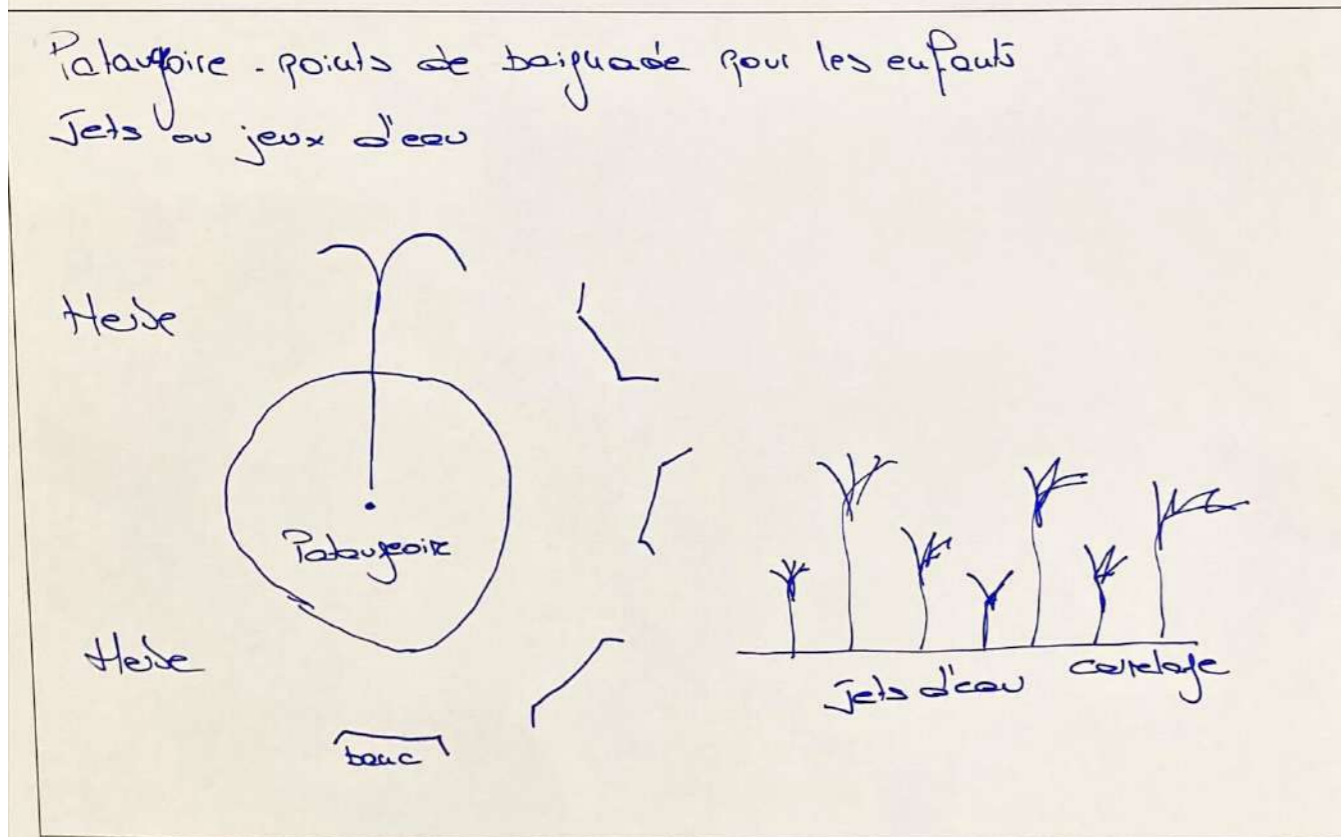 Pataugoire - points de baignade pour les enfants
Jets ou jeux d'eau
Herbe
Pataugeoire
Herbe
Jets d'eau
carrelage
banc